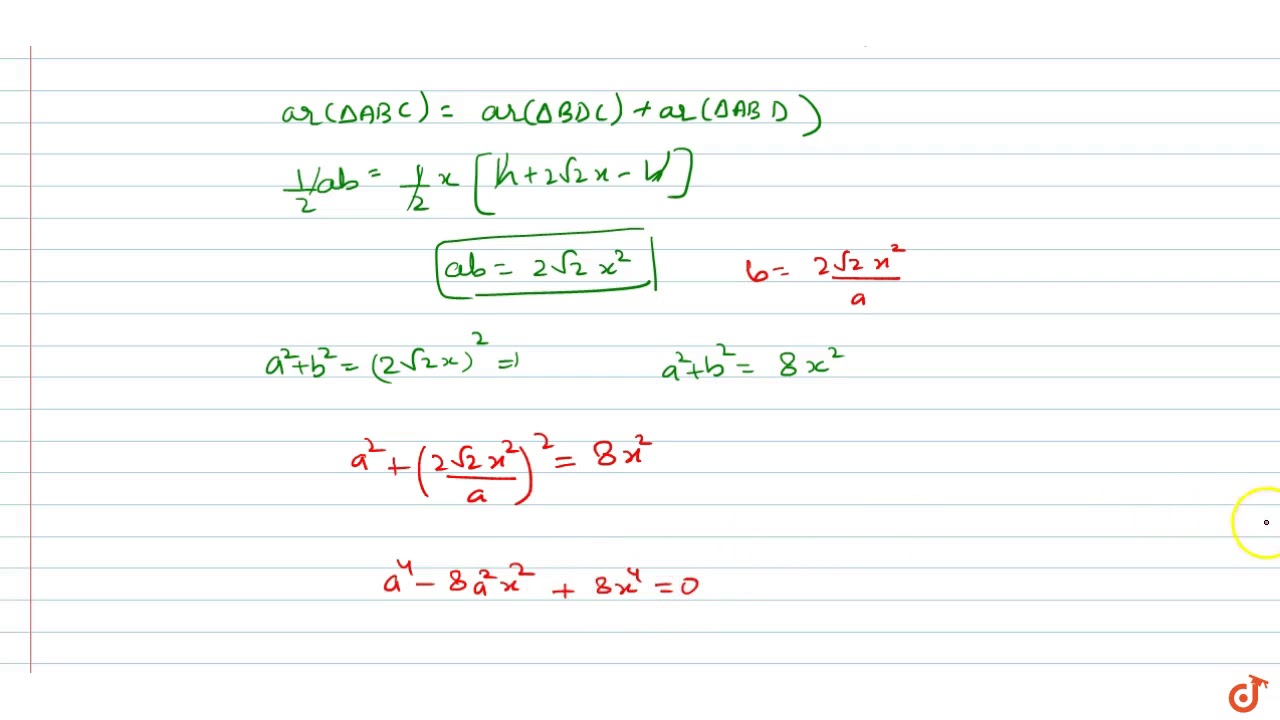 ar(ΔABC) = ar(ΔBDC) + ar(ΔABD)
1/2 ab = 1/2 x [h + 2√2x - h]
ab = 2√2 x² b = 2√2 x²/a
a² + b² = (2√2x)² ⇒ a² + b² = 8x²
a² + (2√2 x²/a)² = 8x²
a⁴ - 8a²x² + 8x⁴ = 0